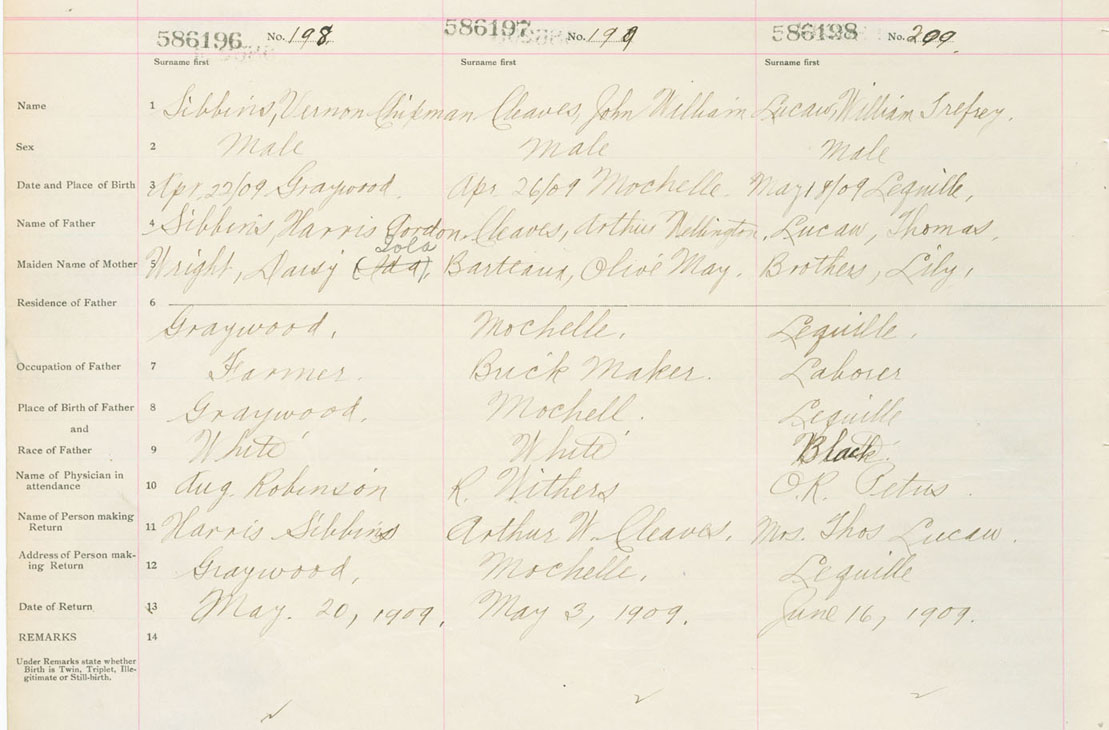 586196 No. 198 586197 No. 199 586198 No. 200
Surname first Surname first Surname first
Name 1 Sibbins, Vernon Chipman Cleaves, John William Lucaw, William Trefrey.
Sex 2 Male Male Male
Date and Place of Birth 3 Apr. 22/09 Graywood. Apr 26/09 Mochelle. May 18/09 Lequille,
Name of Father 4 Sibbins, Harris Gordon. Cleaves, Arthur Wellington. Lucaw, Thomas.
Iola
Maiden Name of Mother 5 Wright, Daisy (Ida), Barteaux, Olive May. Brothers, Lily,
Residence of Father 6
Graywood, Mochelle, Lequille.
Occupation of Father 7 Farmer. Brick Maker. Laborer
Place of Birth of Father 8 Graywood, Mochell. Lequille
and
Race of Father 9 White White Black
Name of Physician in
attendance 10 Aug. Robinson R. Withers O.R. Petus.
Name of Person making
Return 11 Harris Sibbins Arthur W. Cleaves, Mrs. Thos Lucaw.
Address of Person mak-
ing Return 12 Graywood, Mochelle, Lequille
Date of Return 13 May. 20, 1909, May 3, 1909. June 16, 1909.
REMARKS 14
Under Remarks state whether
Birth is Twin, Triplet, Ille-
gitimate or Still-birth.